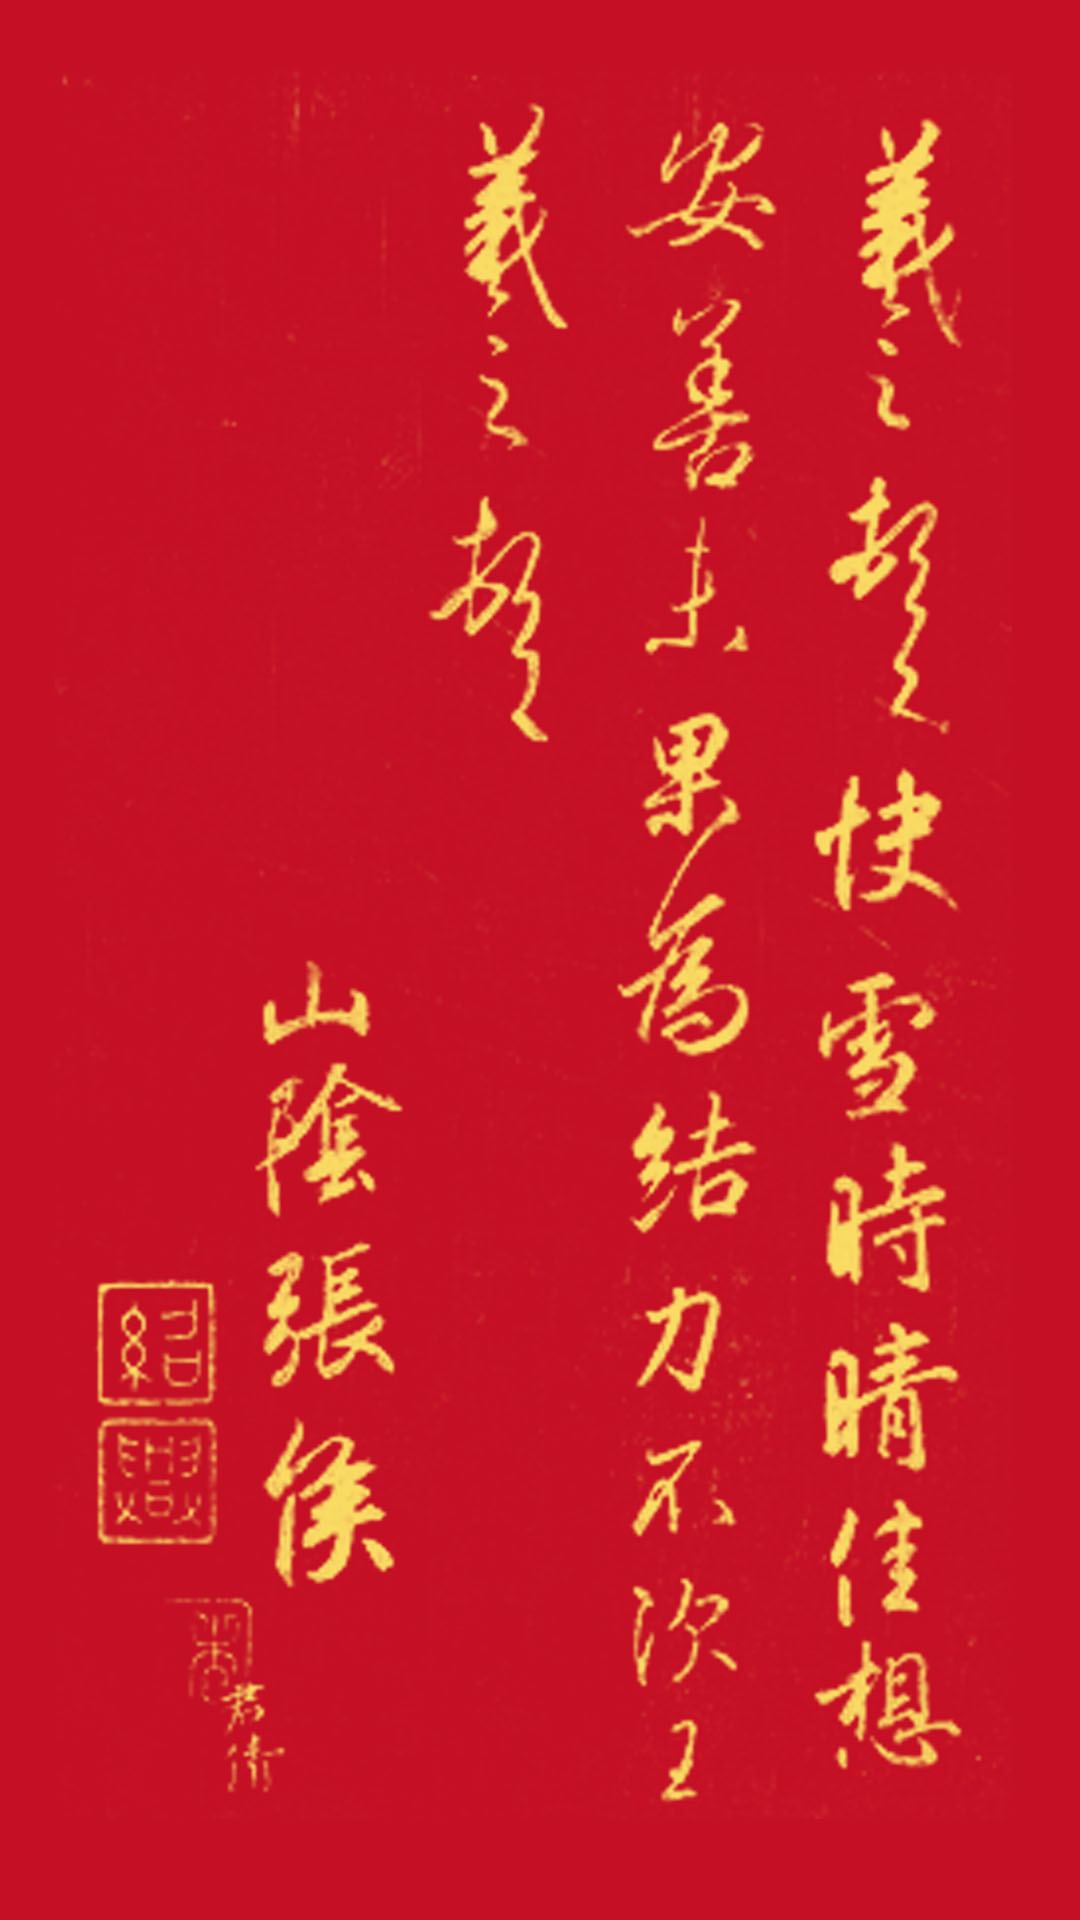 羲之頓首快雪時晴佳想
安善未果為結力不次王
羲之頓首
山陰張侯
紹興
君倩